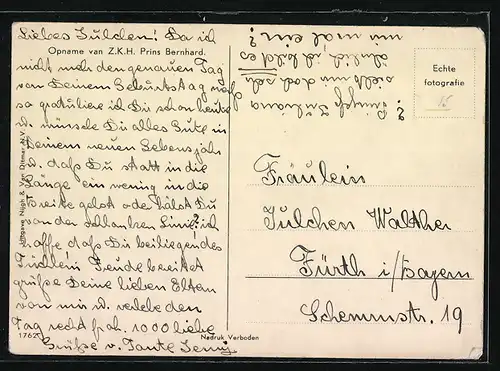 Liebes Julchen! Da ich
Opname van Z.K.H. Prins Bernhard.
nicht mehr den genauen Tag
von Deinem Geburtstag weiß
so gratuliere ich Du schon heute
u. wünsche Du alles Gute in
Deinem neuen Lebensjahr
u. daß Du statt in die
Länge ein wenig in die
Breite gehst oder hälst Du
von der schlanken Linie? ich
hoffe daß Du beiliegendes
Tüchlein Freude bereitet
grüße Deine lieben Eltern
von mir u. verlebe den
Tag recht froh. 1000 liebe
Grüße v. Tante Jenny
Uitgave Nijgh & Van Ditmar N.V.
1762
Nadruk Verboden
Prinzeß Juliana
sieht mir doch sehr
ähnlich, ich bild es
mir mal ein?
Echte
fotografie
Fräulein
Julchen Walther
Fürth i/Bayern
Schemmstr. 19